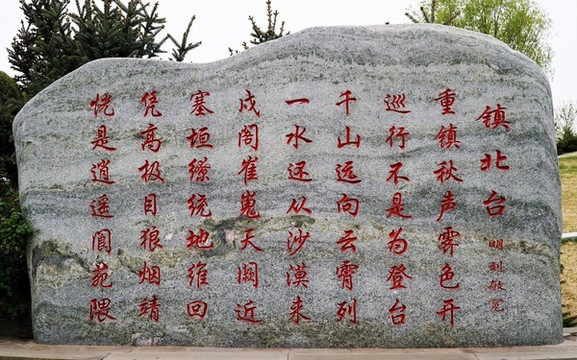 镇北台
明 刘敏宽
重镇秋声霁色开
巡行不是为登台
千山远向云霄列
一水还从沙漠来
戍阁崔嵬天阙近
塞垣缭统地维回
凭高极目狼烟靖
恍是逍遥阆苑隈